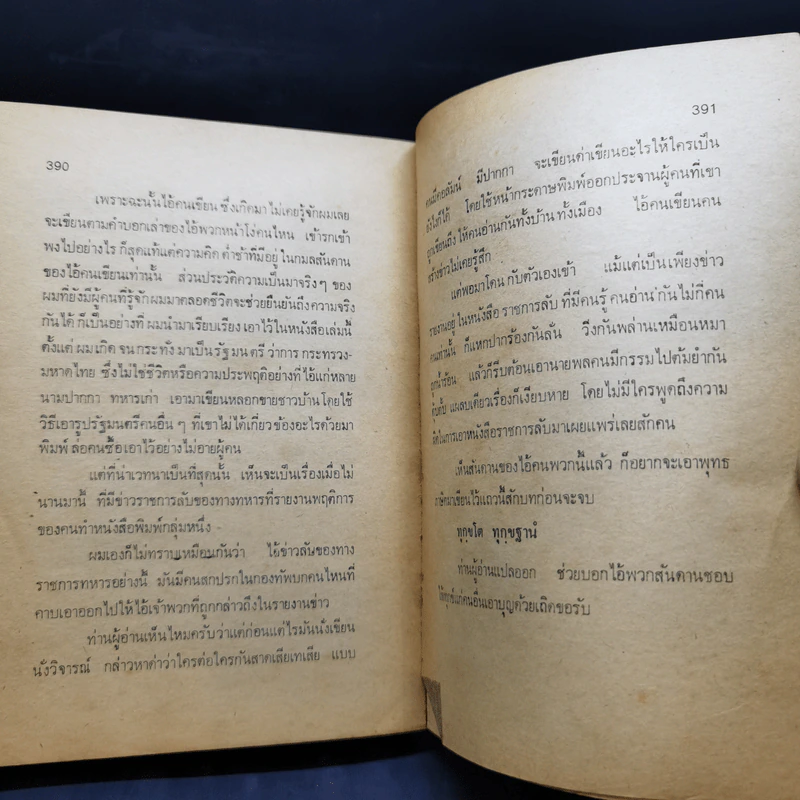 390
เพราะฉะนั้นไอ้คนเขียน ซึ่งเกิดมาไม่เคยรู้จักผมเลย
จะเขียนตามคำบอกเล่าของไอ้พวกหน้าโง่คนไหน เข้ารกเข้า
พงไปอย่างไร ก็สุดแท้แต่ความคิด ต่ำช้าที่มีอยู่ ในกมลสันดาน
ของไอ้คนเขียนเท่านั้น ส่วนประวัติความเป็นมาจริง ๆ ของ
ผมที่ยังมีผู้คนที่รู้จักผมมาตลอดชีวิตจะช่วยยืนยันถึงความจริง
กันได้ ก็เป็นอย่างที่ ผมนำมาเรียบเรียง เอาไว้ในหนังสือเล่มนี้
ตั้งแต่ ผมเกิด จนกระทั่งมาเป็น รัฐมนตรี ว่าการ กระทรวง-
มหาดไทย ซึ่งไม่ใช่ชีวิตหรือความประพฤติอย่างที่ ไอ้แก่หลาย
นามปากกา ทหารเก่า เอามาเขียนหลอกขายชาวบ้าน โดยใช้
วิธีเอารูปรัฐมนตรีคนอื่น ๆ ที่เขาไม่ได้เกี่ยวข้องอะไรด้วยมา
พิมพ์ ล่อคนซื้อเอาไว้อย่างไม่อายผู้คน
แต่ที่น่าเวทนาเป็นที่สุดนั้น เห็นจะเป็นเรื่องเมื่อไม่
นานมานี้ ที่มีข่าวราชการลับของทางทหารที่รายงานพฤติการ
ของคนทำหนังสือพิมพ์กลุ่มหนึ่ง
ผมเองก็ไม่ทราบเหมือนกันว่า ไอ้ข่าวลับของทาง
ราชการทหารอย่างนี้ มันมีคนสกปรกในกองทัพบกคนไหนที่
คาบเอาออกไปให้ไอ้เจ้าพวกที่ถูกกล่าวถึงในรายงานข่าว
ท่านผู้อ่านเห็นไหมครับว่าแต่ก่อนแต่ไรมันนั่งเขียน
นั่งวิจารณ์ กล่าวหาด่าว่าใครต่อใครกันสาดเสียเทเสีย แบบ
391
คนมีคอลัมน์ มีปากกา จะเขียนด่าเขียนอะไรให้ใครเป็น
ยังไงก็ได้ โดยใช้หน้ากระดาษพิมพ์ออกประจานผู้คนที่เขา
ถูกเขียนถึง ให้คนอ่านกันทั้งบ้าน ทั้งเมือง ไอ้คนเขียนคน
สร้างข่าวไม่เคยรู้สึก
แต่พอมาโดน กับตัวเองเข้า แม้แต่เป็นเพียงข่าว
รายงานอยู่ ในหนังสือ ราชการลับ ที่มีคนรู้ คนอ่าน กันไม่กี่คน
คนเท่านั้น ก็แหกปากร้องกันลั่น วิ่งกันพล่านเหมือนหมา
ถูกน้ำร้อน แล้วก็รีบต้อนเอานายพลคนมีกรรมไปต้มยำกัน
แผลบเดียวเรื่องก็เงียบหาย โดยไม่มีใครพูดถึงความ
ผิดในการเอาหนังสือราชการลับมาเผยแพร่เลยสักคน
เห็นสันดานของไอ้คนพวกนี้แล้ว ก็อยากจะเอาพุทธ
ภาษิตมาเขียนไว้แถวนี้สักบทก่อนจะจบ
ทุกฺขโต ทุกฺขฐานํ
ท่านผู้อ่านแปลออก ช่วยบอกไอ้พวกสันดานชอบ
ให้ทุกข์แก่คนอื่นเอาบุญด้วยเถิดขอรับ